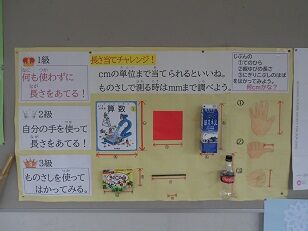 1級
何も使わずに
長さをあてる！
2級
自分の手を使って
長さをあてる！
3級
ものさしを使って
はかってみる。
長さ当てチャレンジ！
cmの単位まで当てられるといいね。
ものさしで測る時はmmまで調べよう。
算数
2
じぶんの
①てのひら
②親ゆびの長さ
③にぎりこぶしのはば
をはかってみよう。
何cmかな？
①
②
③